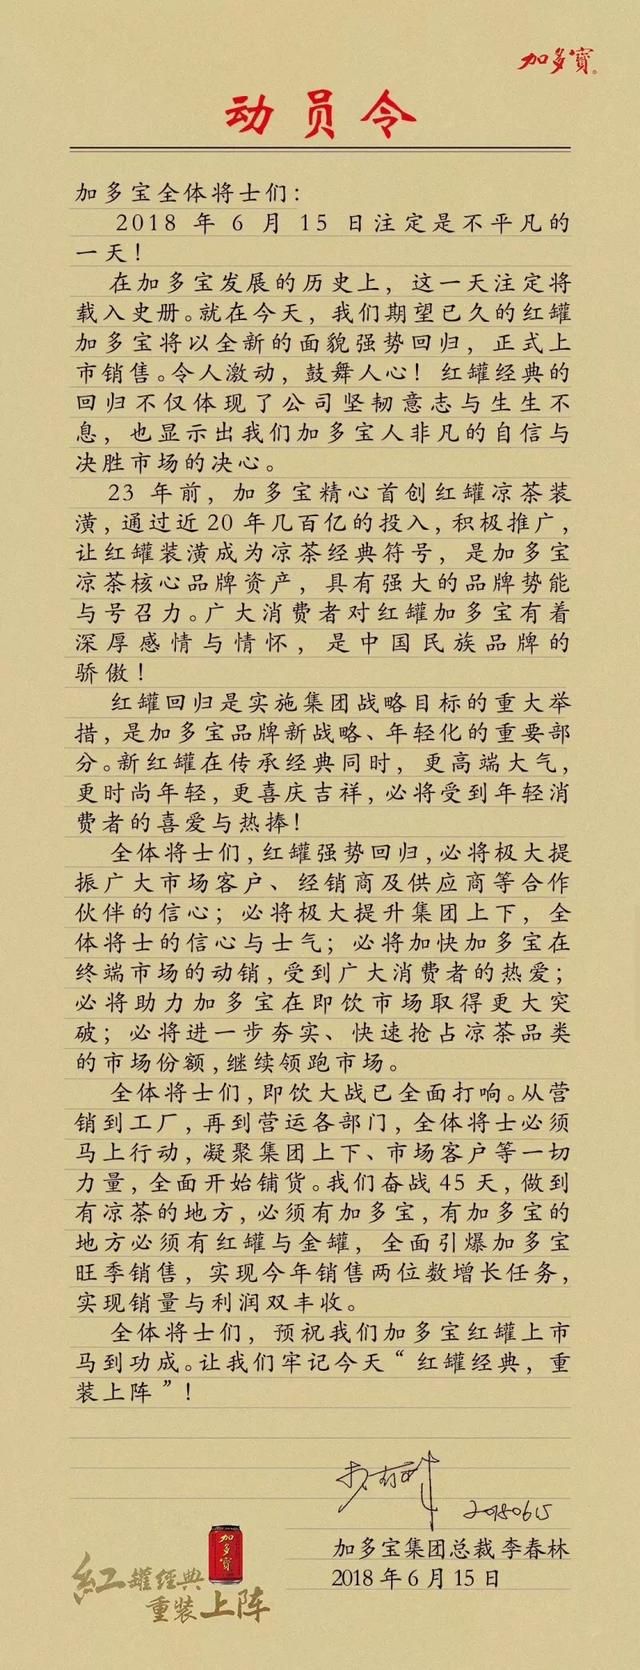 加多寶
动员令
加多宝全体将士们：
2018 年 6 月 15 日注定是不平凡的
一天！
在加多宝发展的历史上，这一天注定将
载入史册。就在今天，我们期望已久的红罐
加多宝将以全新的面貌强势回归，正式上
市销售。令人激动，鼓舞人心！红罐经典的
回归不仅体现了公司坚韧意志与生生不
息，也显示出我们加多宝人非凡的自信与
决胜市场的决心。
23 年前，加多宝精心首创红罐凉茶装
潢，通过近20年几百亿的投入，积极推广，
让红罐装潢成为凉茶经典符号，是加多宝
凉茶核心品牌资产，具有强大的品牌势能
与号召力。广大消费者对红罐加多宝有着
深厚感情与情怀，是中国民族品牌的
骄傲！
红罐回归是实施集团战略目标的重大举
措，是加多宝品牌新战略、年轻化的重要部
分。新红罐在传承经典同时，更高端大气，
更时尚年轻，更喜庆吉祥，必将受到年轻消
费者的喜爱与热捧！
全体将士们，红罐强势回归，必将极大提
振广大市场客户、经销商及供应商等合作
伙伴的信心；必将极大提升集团上下，全
体将士的信心与士气；必将加快加多宝在
终端市场的动销，受到广大消费者的热爱；
必将助力加多宝在即饮市场取得更大突
破；必将进一步夯实、快速抢占凉茶品类
的市场份额，继续领跑市场。
全体将士们，即饮大战已全面打响。从营
销到工厂，再到营运各部门，全体将士必须
马上行动，凝聚集团上下、市场客户等一切
力量，全面开始铺货。我们奋战45天，做到
有凉茶的地方，必须有加多宝，有加多宝的
地方必须有红罐与金罐，全面引爆加多宝
旺季销售，实现今年销售两位数增长任务，
实现销量与利润双丰收。
全体将士们，预祝我们加多宝红罐上市
马到功成。让我们牢记今天“红罐经典，重
装上阵”！
20180615
加多宝集团总裁 李春林
2018 年 6 月 15 日
加多寶
紅罐經典
重装上阵